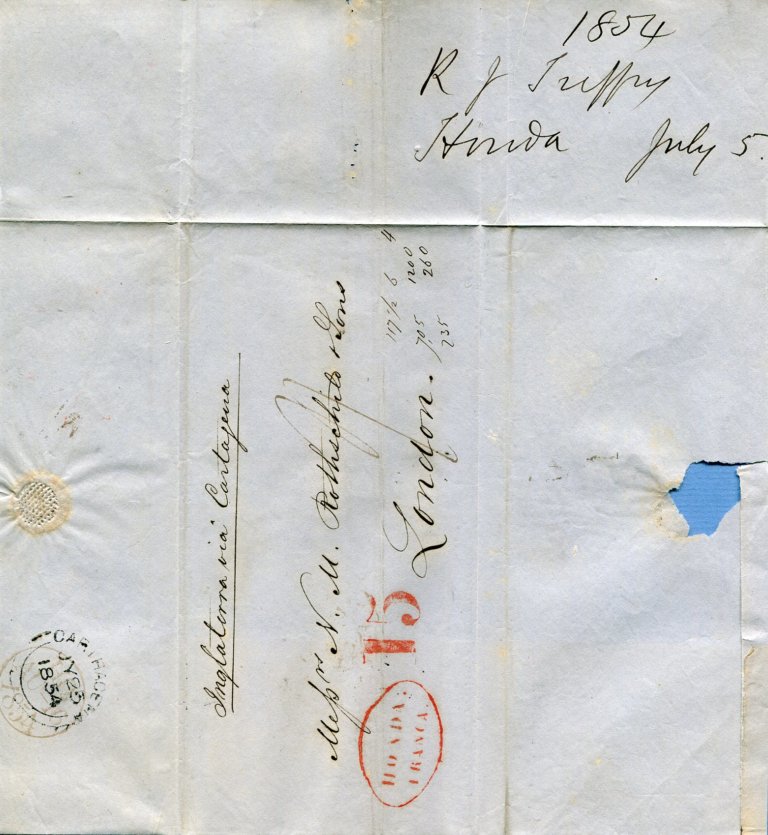 1854
R J Treffry
Honda July 5.
Inglaterra via Cartagena
Messrs N. M. Rothschild & Sons
London.
117 1/2 6 4
705 1200
235 260
15
HONDA
FRANCA.
CARTHAGENA
JY 25
1854